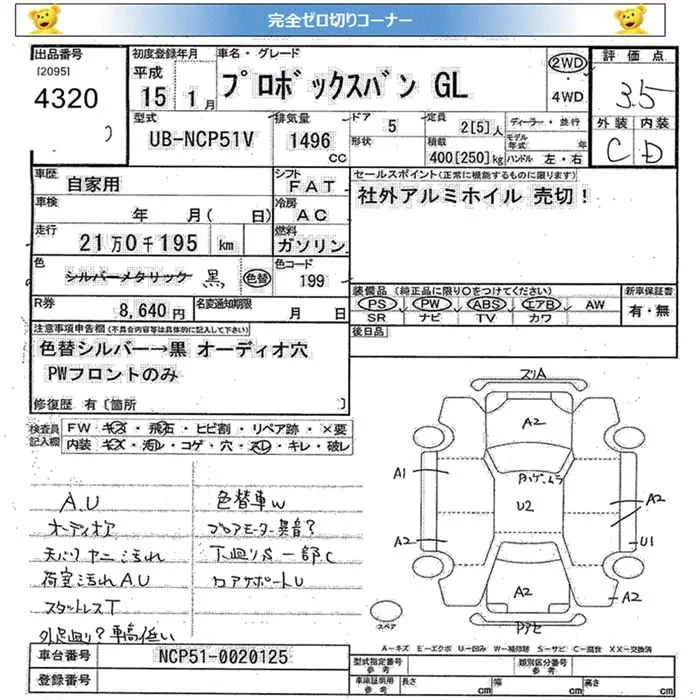 完全ゼロ切りコーナー
出品番号 初度登録年月 車名・グレード 評価点
120951
4320
平成 15年 1月
プロボックスバン GL
2WD
4WD
3.5
外装 内装
C D
型式 排気量 ドア 5 定員 2[5]人 ディーラー・並行
UB-NCP51V 1496 CC
形状 積載 400[250]kg モデル年式 年 ハンドル 左・右
車歴 自家用 シフト FAT
セールスポイント(正常に機能するものに限ります)
社外アルミホイル 売切!
車検 年 月( 日) 冷房 AC
走行 21万0千195 km 燃料 ガソリン
色 シルバーメタリック 黒 色替 色コード 199
装備品 (純正品に限り○をつけてください) 新車保証書
PS PW ABS エアB AW 有・無
SR ナビ TV カワ
R券 8,640円 名変通知期限 月 日
後日品
注意事項申告欄(不具合内容等は具体的に記入して下さい)
色替シルバー→黒 オーディオ穴
PWフロントのみ
修復歴 有〔箇所 〕
検査員記入欄 FW キズ・飛石・ヒビ割・リペア跡・×要
内装 キズ・汚レ・コゲ・穴・スレ・キレ・破レ
A.U
オーディオア
天バリ ヤニ 汚れ
荷室汚れ A U
スタットレスT
外足廻り? 車高低い
色替車W
ブロアモーター異音?
下廻りS 一部C
コアサポートU
スリA
A2
A1
U2
A2
A2
U1
A2
A2
スペア
A-キズ E-エクボ U-凹み W-補修跡 S-サビ C-腐食 XX-交換済
車台番号 NCP51-0020125
登録番号
型式指定番号 参考 類別区分番号 参考
車庫証明用 参考 長さ cm 幅 cm 高さ cm